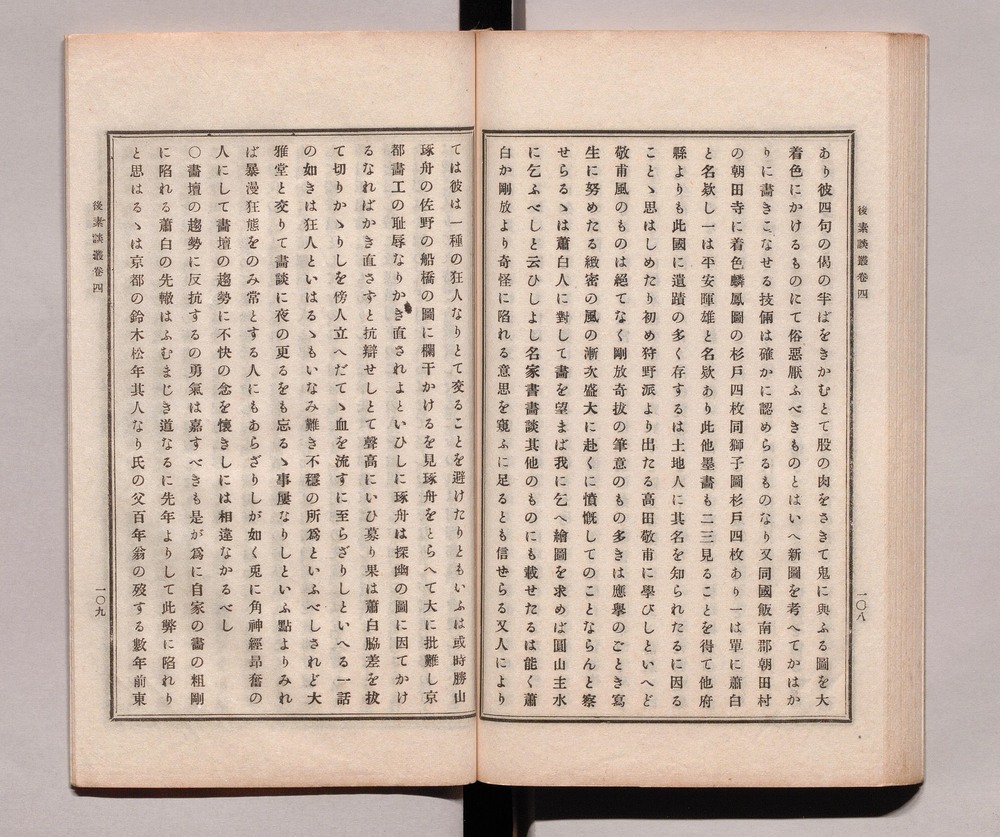 後素談叢卷四
一〇八
あり彼四句の偈の半ばをきかむとて股の肉をさきて鬼に與ふる圖を大
着色にかけるものにて俗惡厭ふべきものとはいへ新圖を考へてかはか
りに畵きこなせる技倆は確かに認めらるものなり又同國飯南郡朝田村
の朝田寺に着色麟鳳圖の杉戸四枚同獅子圖杉戸四枚あり一は單に蕭白
と名欵し一は平安暉雄と名欵あり此他墨畵も二三見ることを得て他府
縣よりも此國に遺蹟の多く存するは土地人に其名を知られたるに因る
ことゝ思はしめたり初め狩野派より出たる高田敬甫に學びしといへど
敬甫風のものは絕てなく剛放奇拔の筆意のもの多きは應擧のごとき寫
生に努めたる緻密の風の漸次盛大に赴くに憤慨してのことならんと察
せらるゝは蕭白人に對して畵を望まば我に乞へ繪圖を求めば圓山主水
に乞ふべしと云ひしよし名家書畵談其他のものにも載せたるは能く蕭
白か剛放より奇怪に陷れる意思を窺ふに足るとも信せらる又人により
ては彼は一種の狂人なりとて交ることを避けたりともいふは或時勝山
琢舟の佐野の船橋の圖に欄干かけるを見琢舟をとらへて大に批難し京
都畵工の耻辱なりかき直されよといひしに琢舟は探幽の圖に因てかけ
るなればかき直さすと抗辯せしとて聲高にいひ募り果は蕭白脇差を拔
て切りかゝりしを傍人立へだてゝ血を流すに至らざりしといへる一話
の如きは狂人といはるゝもいなみ難き不穩の所爲といふべしされど大
雅堂と交りて畵談に夜の更るをも忘るゝ事屢なりしといふ點よりみれ
ば暴漫狂態をのみ常とする人にもあらざりしが如く兎に角神經昂奮の
人にして畵壇の趨勢に不快の念を懷きしには相違なかるべし
〇畵壇の趨勢に反抗するの勇氣は嘉すべきも是が爲に自家の畵の粗剛
に陷れる蕭白の先轍はふむまじき道なるに先年よりして此弊に陷れり
と思はるゝは京都の鈴木松年其人なり氏の父百年翁の歿する數年前東
後素談叢卷四
一〇九